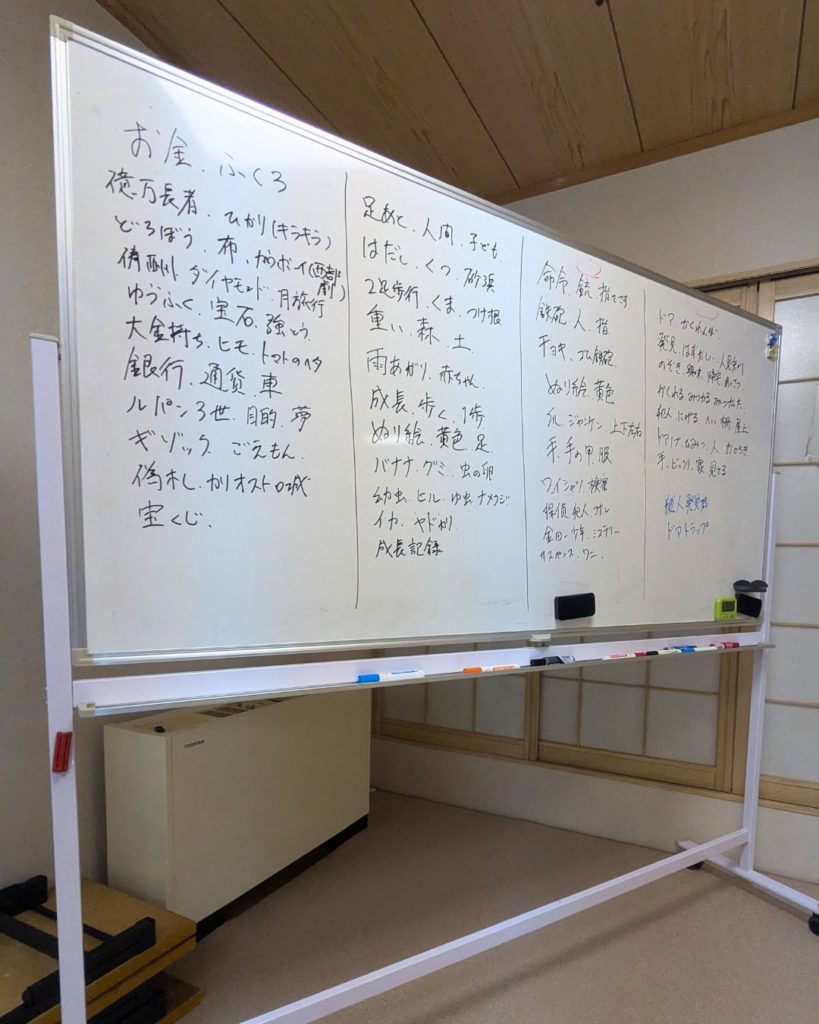 お金、ふくろ
億万長者、ひかり(キラキラ)
どろぼう、布、カウボーイ(西部劇)
ダイヤモンド、月旅行
ゆうふく、宝石、強とう
大金持ち、ヒモ、トマトのヘタ
銀行、通貨、車
ルパン3世、目的、夢
ギゾック、ごえもん、
偽札、カリオストロ城
宝くじ、
足あと、人間、子ども
はだし、くつ、砂浜
2足歩行、くま、つけ根
重い、森、土
雨あがり、赤ちゃん、
成長、歩く、1歩
ぬり絵、黄色、足
バナナ、グミ、虫の卵
幼虫、ヒル、ゆ虫、ナメクジ
イカ、ヤドカリ
成長記録
命令、銃、指
鉄砲、人、指
チョキ、ゴム鉄砲
ぬり絵、黄色
爪、ジャンケン、上下左右
手、手の甲、服
ワイシャツ、検察
探偵、犯人、
金田一少年、ミステリー
サスペンス、ワニ、
ドア、かくれんぼ、
発見、はずかしい、人見知り
のぞき、
かくれる、みつかる、みつけた、
犯人、にげる、へい、柵、屋上
人、おどろき、
手、ビックリ、家、見てる
犯人発見
ドアトラップ
TOSHIBA